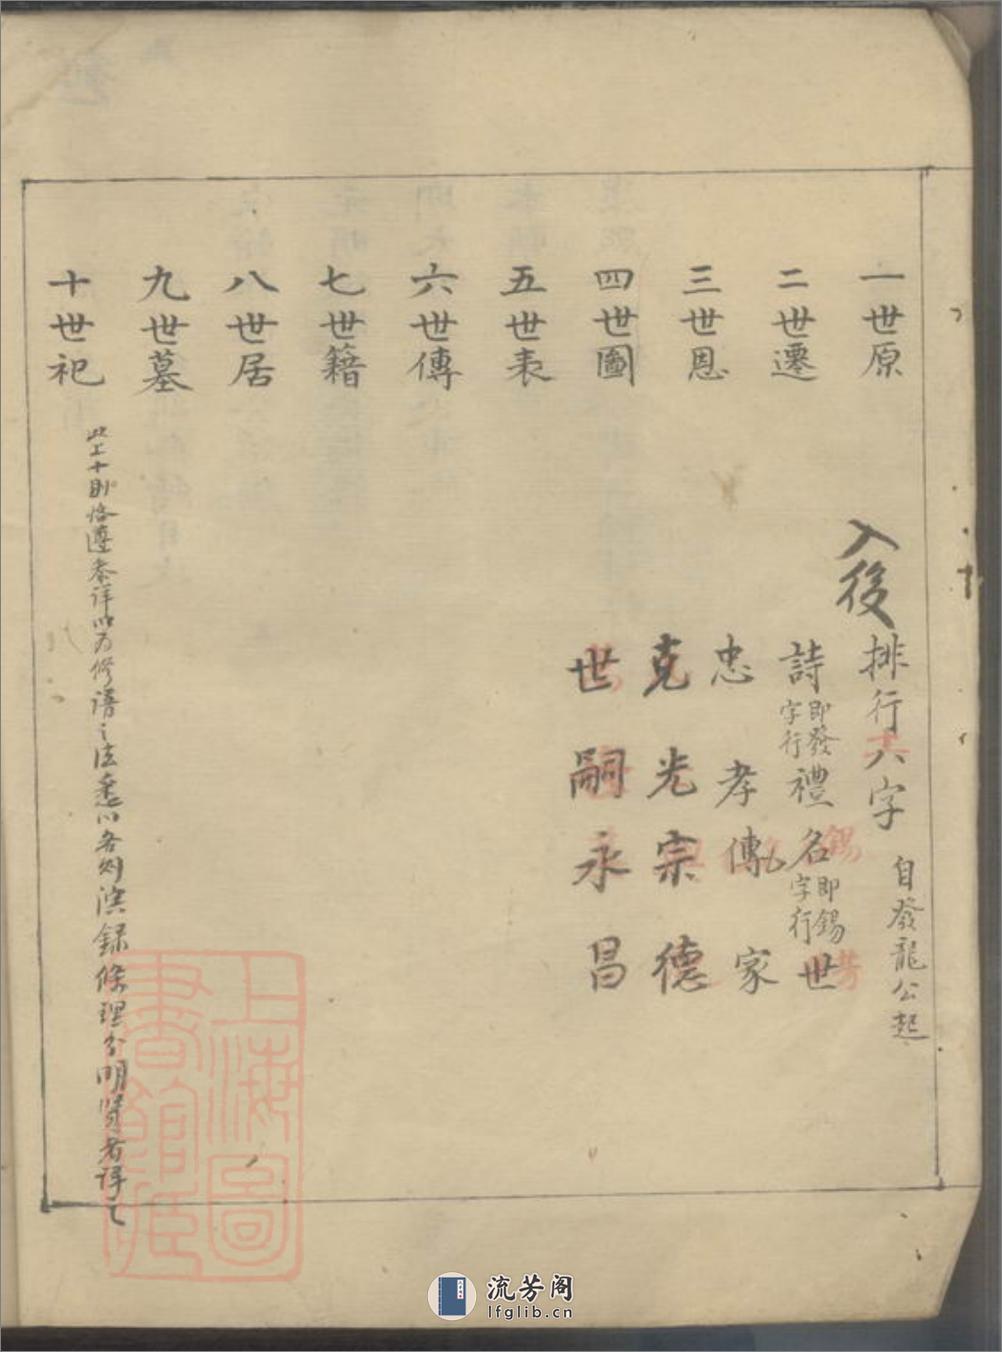 一世原
二世遷
三世恩
四世圖
五世表
六世傳
七世籍
八世居
九世墓
十世祀
此上十則恪遵奉詳以为修譜之法悉以各则演録條理分明賢者详之
入後排行
六字
自發龍公起
詩即發字行禮名即錫字行世
忠孝傳家
克光宗德
世嗣永昌
錫
芳
上海圖
書館藏
流芳阁
lfglib.cn